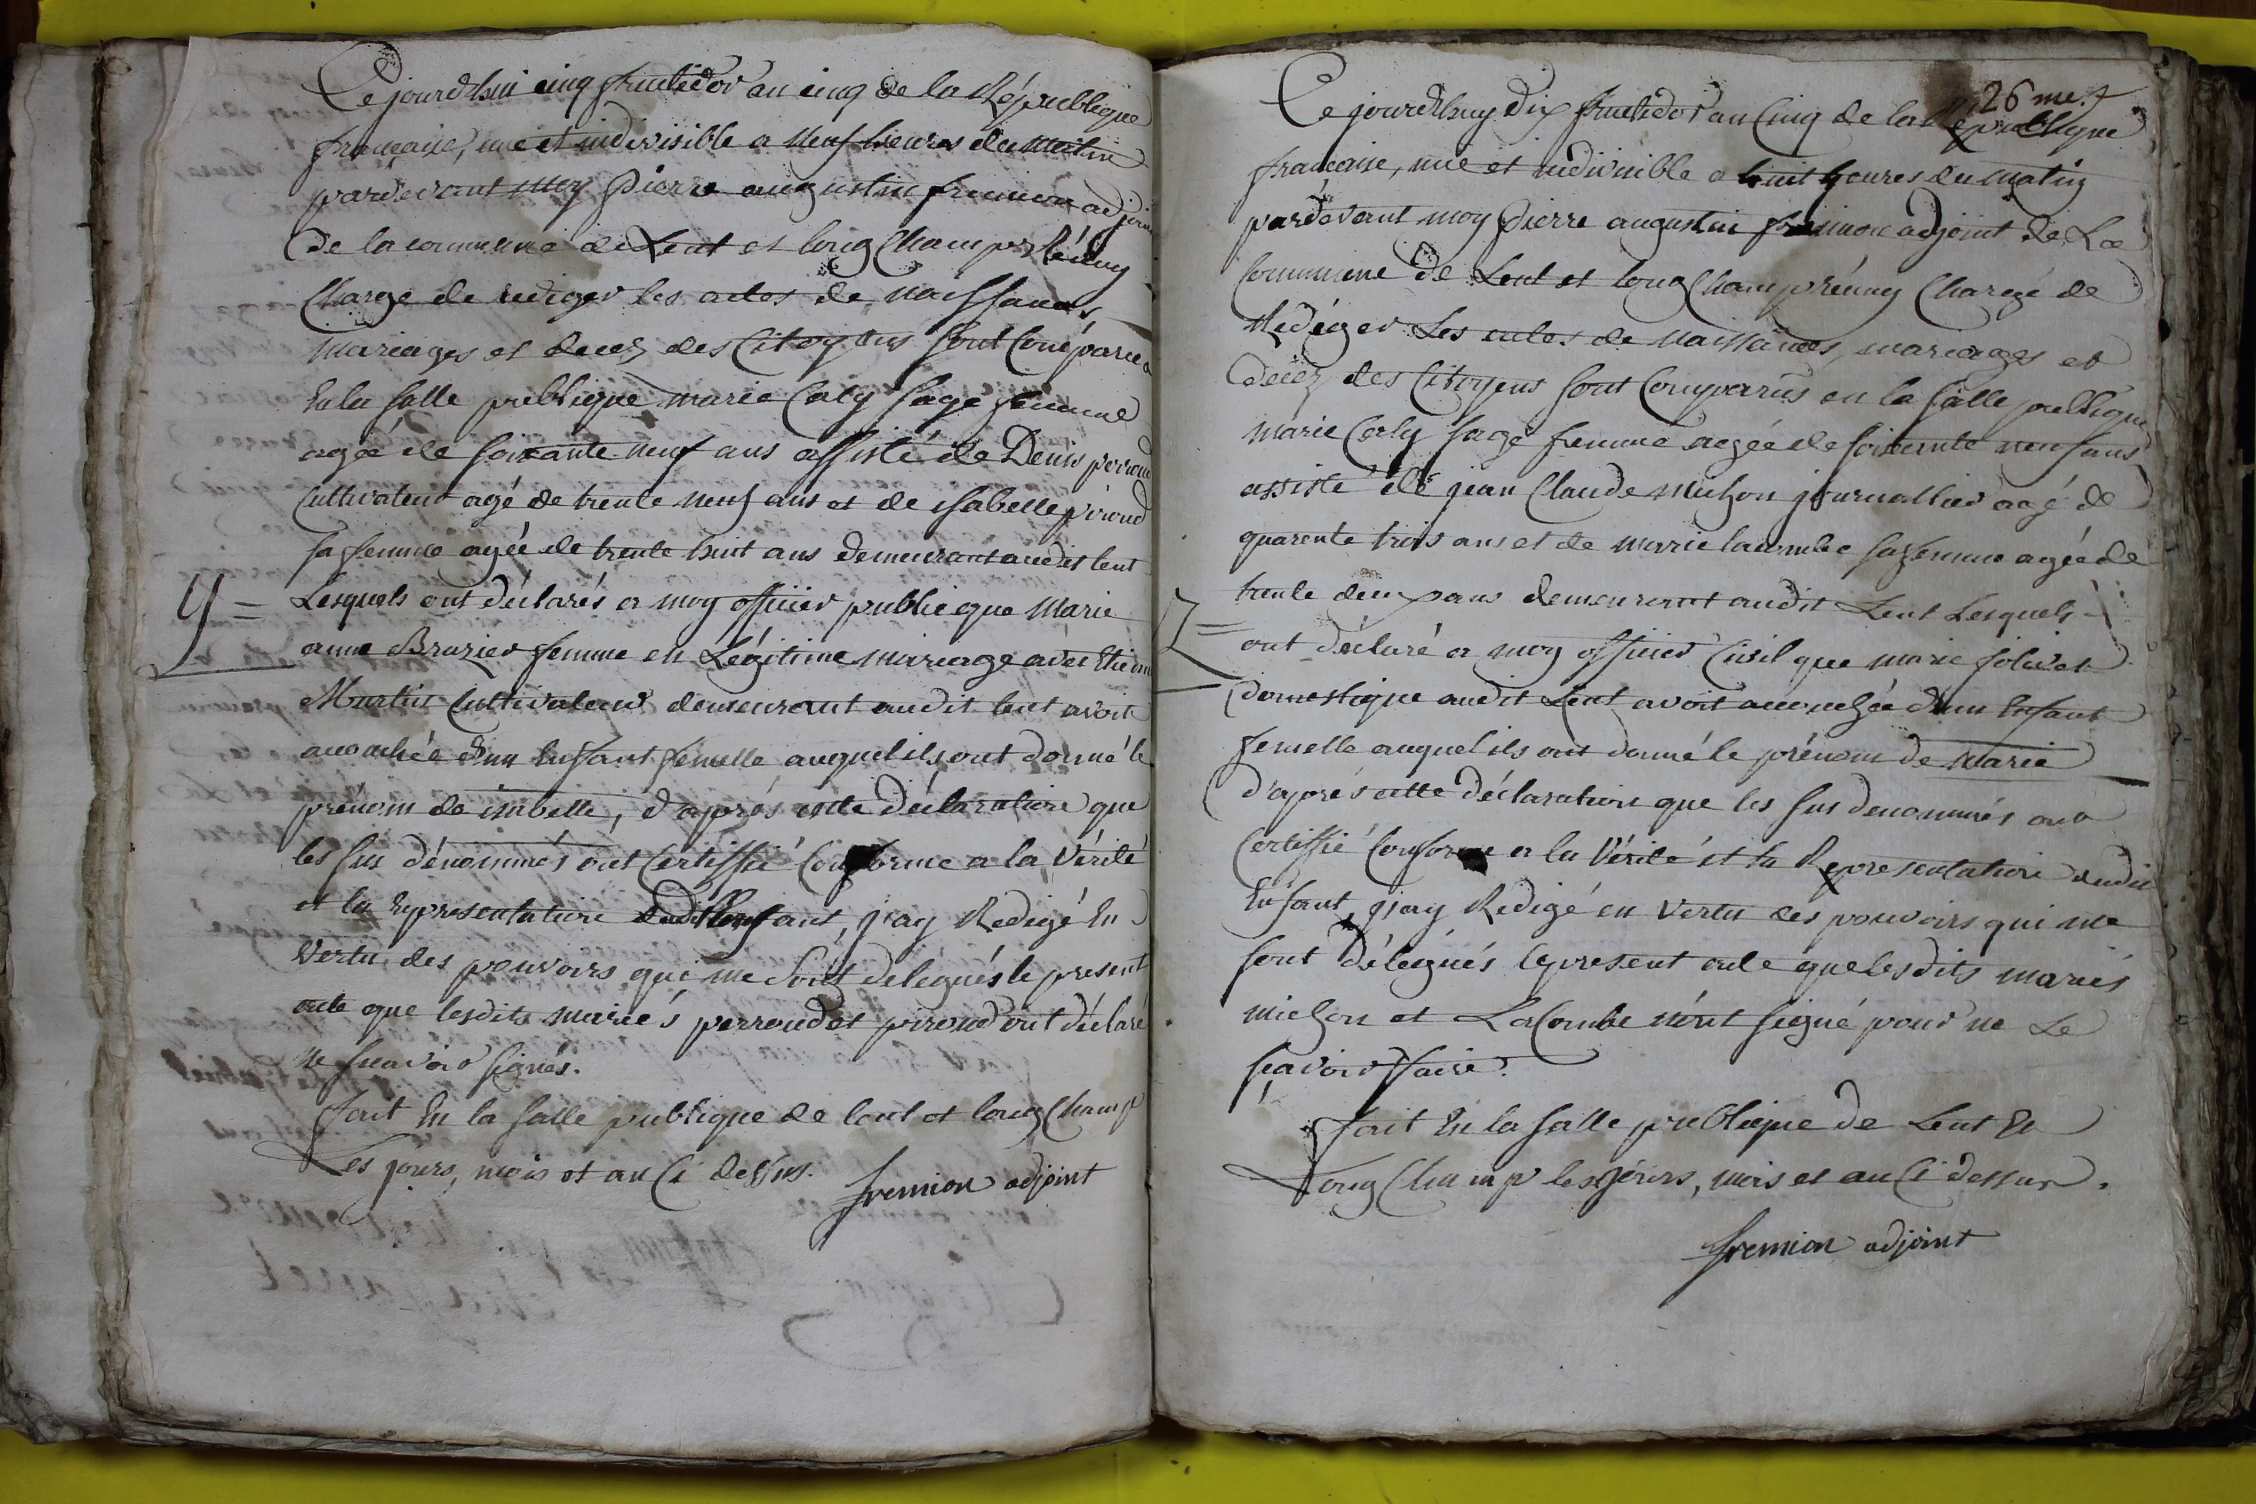 Ce jourd'hui cinq fructidor an cinq de la République
française, une et indivisible a neuf heures du matin
pardevant moy Pierre augustin fremion adjoint
de la commune de Lent et longchamp réuny
Chargé de rediger les actes de naissances
mariages et decez des Citoyens sont Comparus
En la salle publique marie Caly sage femme
agée de soixante neuf ans assisté de Denis perroud
Cultivateur agé de trente neuf ans et de isabelle piroud
sa femme agée de trente huit ans demeurant audit lent
Lesquels ont déclarés a moy officier public que Marie
anne Brazier femme en Légitime mariage avec Etienne
Martin Cultivateur demeurant audit lent avoit
accouchée d'un Enfant femelle auquel ils ont donné le
prénom de isabelle, d'après cette déclaration que
les sus dénommés ont Certiffié Conforme a la Vérité
et la Representation dudit Enfant, j'ay Redigé En
Vertu des pouvoirs qui me sont delegués le present
acte que lesdits mariés perroud et piroud ont déclaré
ne scavoir signés.
fait En la salle publique de lent et longchamp
Les jours, mois et an Ci dessus. fremion adjoint
26 me.
Ce jourd'huy Dix fructidor an Cinq de la République
française, une et indivisible a huit heures du matin
pardevant moy Pierre augustin fremion adjoint de La
Commune de Lent et longchamp réuny Chargé de
Rédiger Les actes de naissances, mariages et
decez des Citoyens sont Comparrus en la salle publique
marie Caly sage femme agée de soixante neuf ans
assisté de jean Claude michon journallier agé de
quarente trois ans et de marie lacombe sa femme agée de
trente deux ans demeurant audit Lent Lesquels
ont déclaré a moy officier Civil que marie solivet
domestique audit Lent avoit accouchée d'un Enfant
femelle auquel ils ont donné le prénom de Marie
d'après cette déclaration que les sus denommés ont
Certiffié Conforme a la Vérité et la Representation dudit
Enfant, j'ay Redigé en Vertu des pouvoirs qui me
sont délégués le present acte que lesdits mariés
michon et LaCombe n'ont signé pour ne Le
scavoir faire.
fait En la salle publique de Lent Et
Long Champ les jours, mois et an Ci dessus.
fremion adjoint